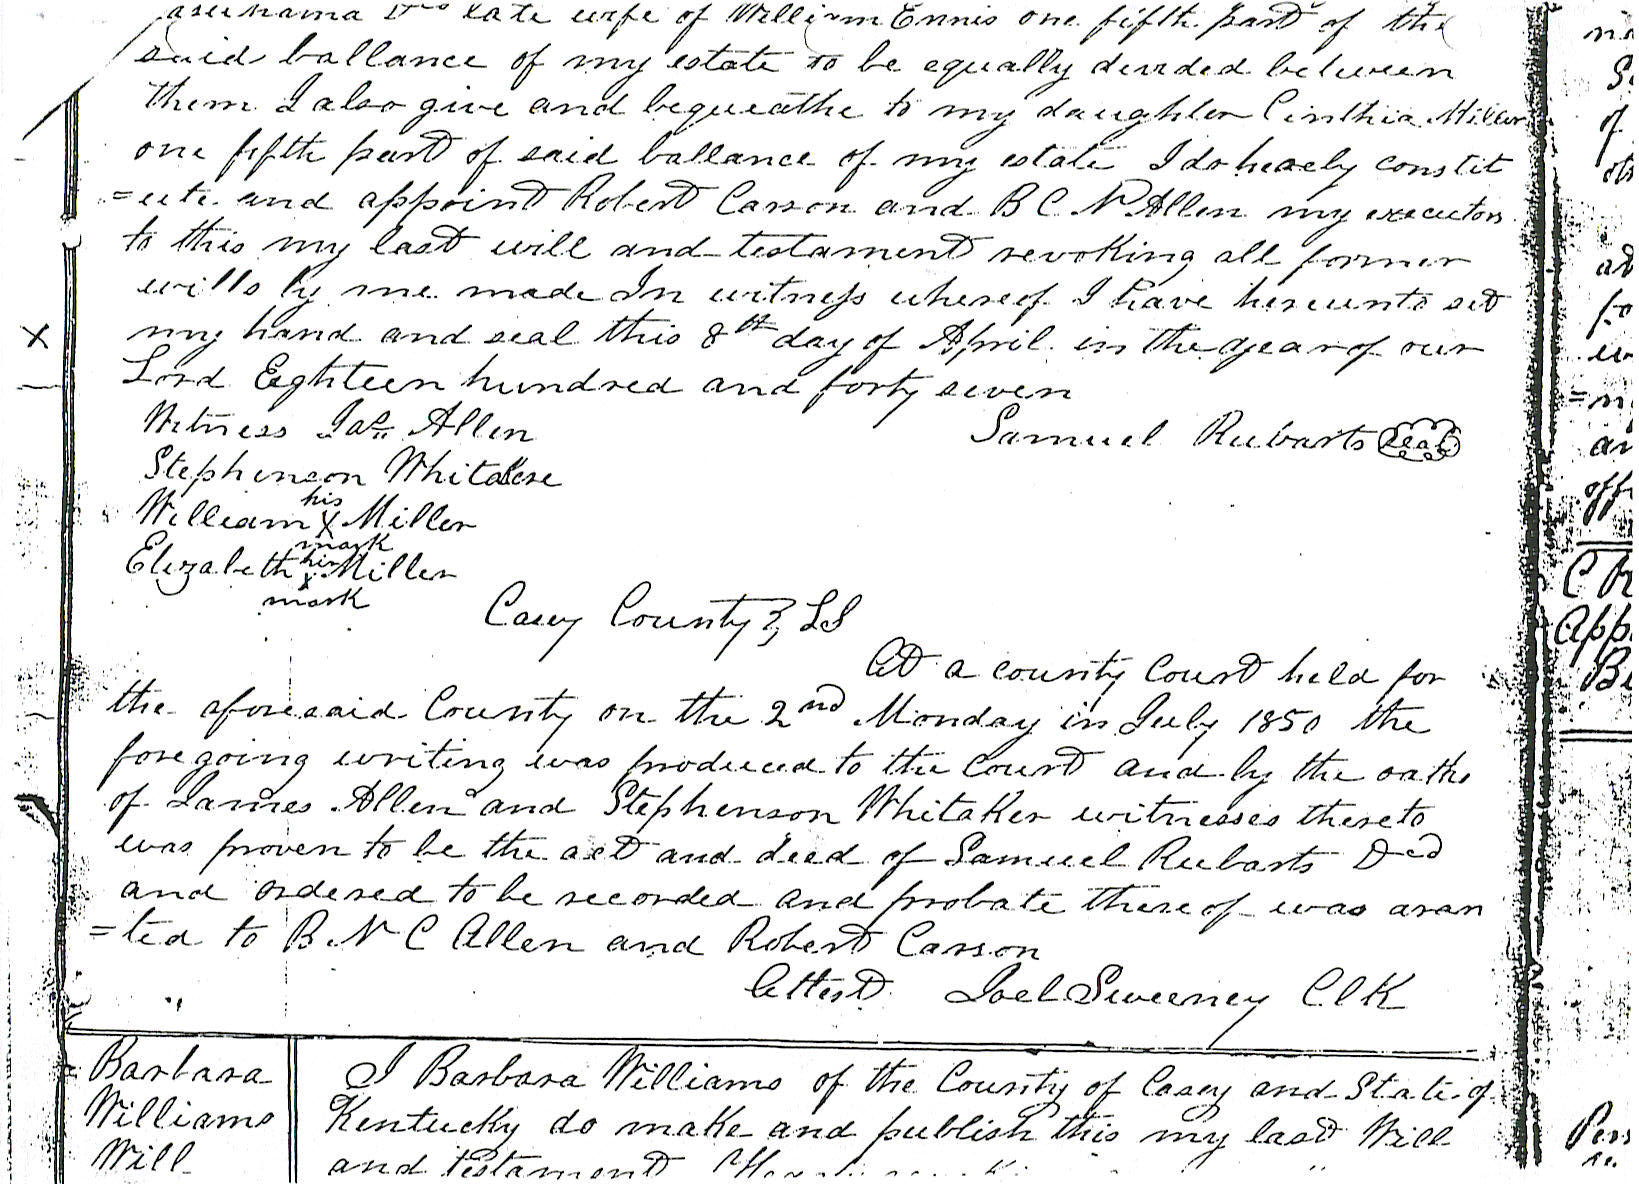 late wife of William Ennis one fifth part of the
said ballance of my estate to be equally devided between
them I also give and bequeathe to my daughter Cinthia Miller
one fifth part of said ballance of my estate I do hereby constit
=ute and appoint Robert Carson and B C N Allen my executors
to this my last will and testament revoking all former
wills by me made In witness whereof I have hereunto set
my hand and seal this 8th day of April in the year of our
Lord Eighteen hundred and forty seven
Witness Jas Allen
Samuel Rubarts Seal
Stephenson Whitaker
William his X Miller
mark
Elizabeth his x Miller
mark
Casey County } LS
At a county Court held for
the aforesaid County on the 2nd Monday in July 1850 the
foregoing writing was produced to the Court and by the oaths
of James Allen and Stephenson Whitaker witnesses thereto
was proven to be the act and deed of Samuel Rubarts Dcd
and ordered to be recorded and probate thereof was aran
=ted to B N C Allen and Robert Carson
Attest Joel Sweeney Clk
Barbara
Williams
Will
I Barbara Williams of the County of Casey and State of
Kentucky do make and publish this my last Will
and testament
X